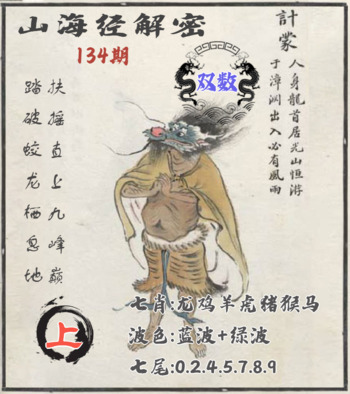 山海经解密
134期
双数
計蒙
人身龍首居光山恒游
于漳淵出入必有風雨
扶摇直上九峰巅
踏破蛟龙栖息地
上
七肖:龙鸡羊虎猪猴马
波色:蓝波+绿波
七尾:0.2.4.5.7.8.9